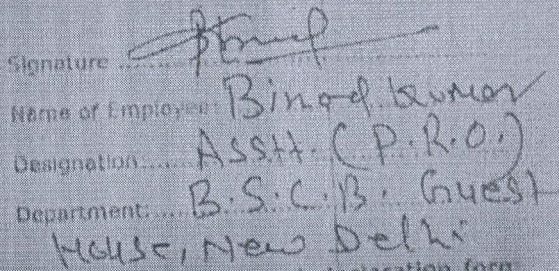 Signature
Name of Employee: Binod Kumar
Designation: Asstt. (P.R.O.)
Department: B.S.C.B. Guest
House, New Delhi